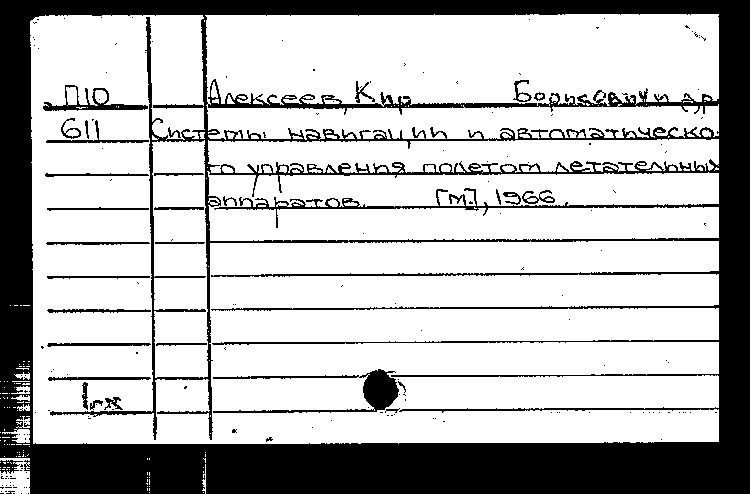 П10 Алексеев, Кир Борисович и др.
611 Системы навигации и автоматическо-
го управления полетом летательных
аппаратов. [М.], 1966.
1